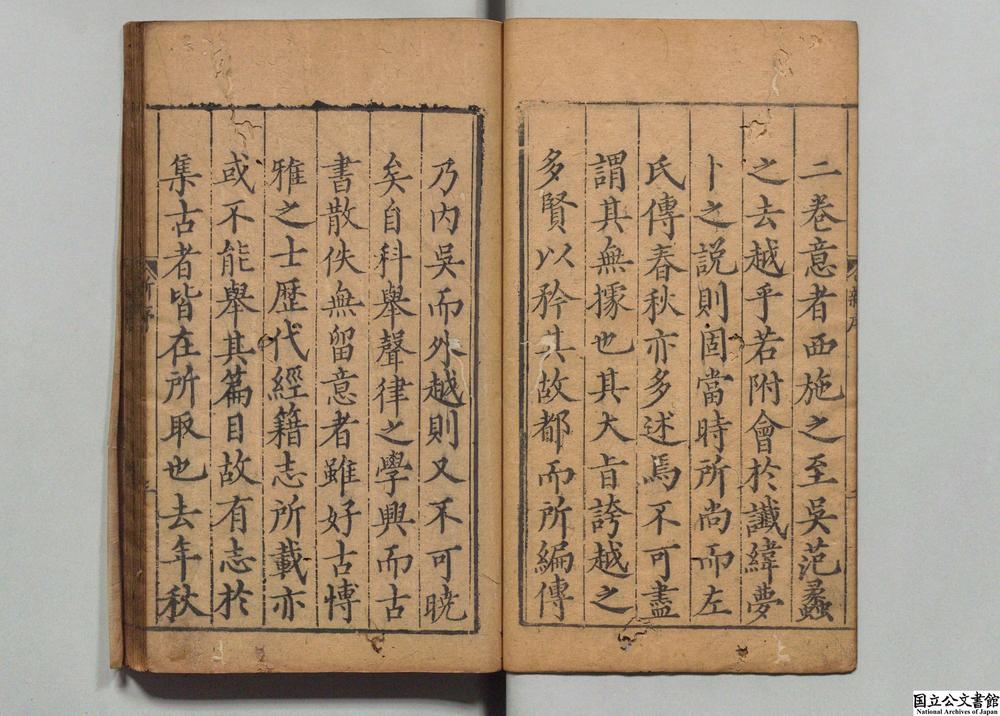 二卷意者西施之至吳范蠡
之去越乎若附會於讖緯夢
卜之説則固當時所尚而左
氏傳春秋亦多述焉不可盡
謂其無據也其大旨誇越之
多賢以矜其故都而所編傳
乃内吳而外越則又不可暁
矣自科舉聲律之學興而古
書散佚無留意者雖好古博
雅之士歴代經籍志所載亦
或不能舉其篇目故有志於
集古者皆在所取也去年秋
国立公文書館
National Archives of Japan